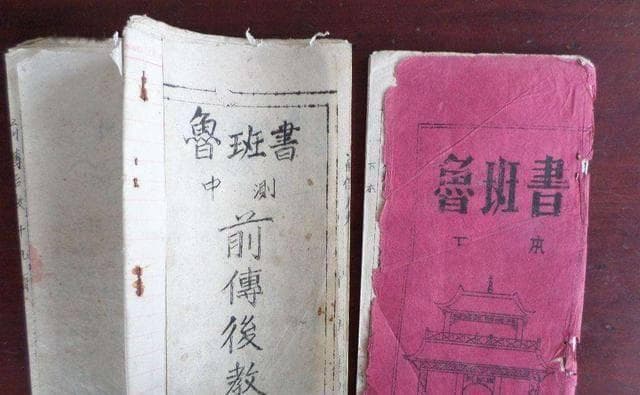 魯班書
中測
前傳後教
魯班書
下本
下本